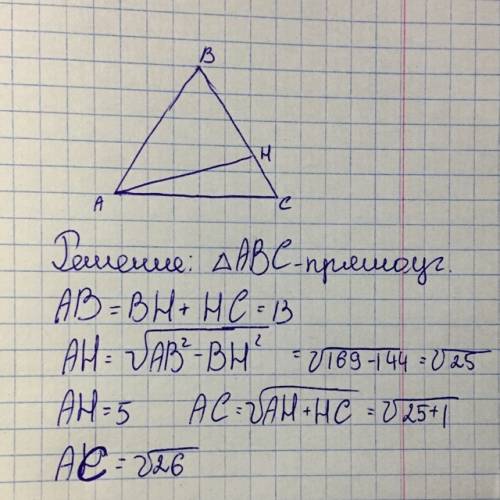 B
H
A
C
Решение: △ABC-прямоуг.
AB = BH + HC = 13
AH = √(AB² - BH²) = √(169-144) = √25
AH = 5 AC = √(AH + HC) = √(25+1)
AC = √26